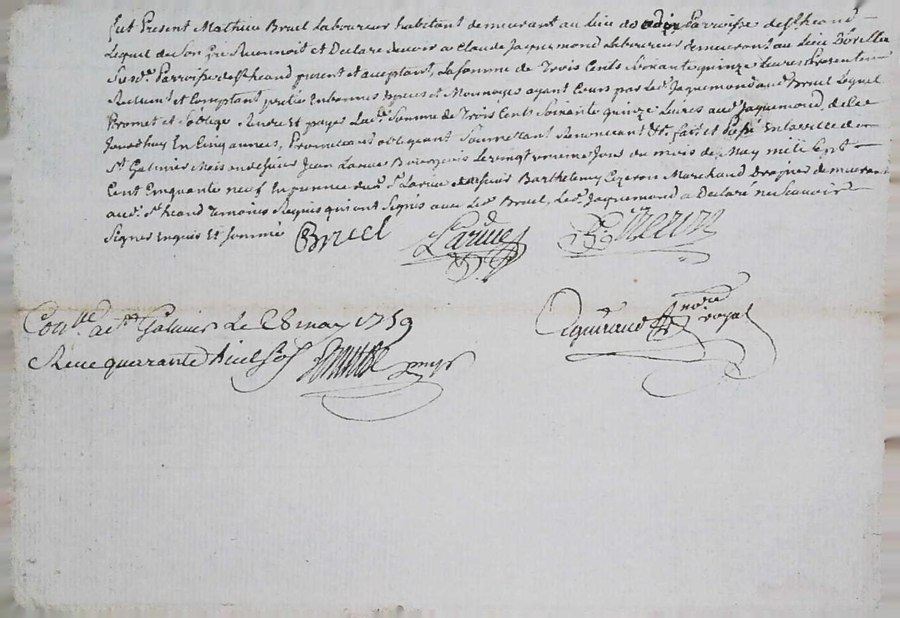 fut Present Mathieu Bruel Laboureur habitant demeurant au Lieu de Parroisse de St heand
Lequel de Son gré Reconnoit et Declare devoir a Claude Jaquemond Laboureur demeurant au Lieu
Susde Parroisse de St heand present et aceptant, La somme de Trois Cents Soixante quinze Livres
Reellement et Comptant en bonnes Especes et Monnoyes ayant Cours par Led. Jaquemond aud. Bruel Lequel
Promet et s'oblige Rendre Et payer Lad. Somme de Trois Cents Soixante quinze Livres aud. Jaquemond, de Ce
Jourdhuy En Cinq annees, obligeant Soumettant Renonceant &c. fait et Passé En la ville de
St Galmier Jean Larue Bourgeois Le vingt Jour du mois de May mil Sept
Cent Cinquante neuf En presence dud. Sr. Larue et de Sieur Barthelemy Ezeron Marchand demeurant
aud. St. heand temoins Requis qui ont Signes avec Led. Bruel, Led. Jaquemond a Declaré ne Sçavoir
Signer Enquis Et Sommé
Bruel Larue Ezeron
Conlle a St Galmier Le 28 may 1759
Receu quarante huit Sols
nore royal